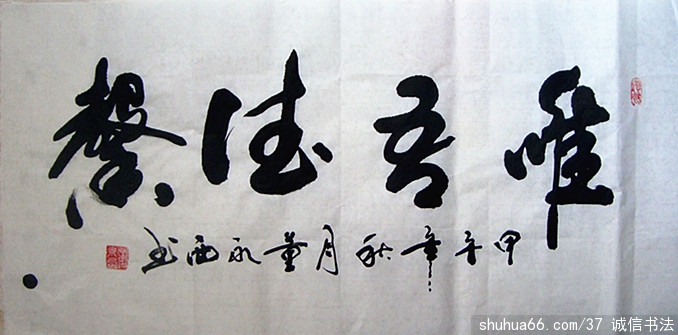 唯吾德馨
甲午年秋月董永西书
shuhua66.com/37 诚信书法